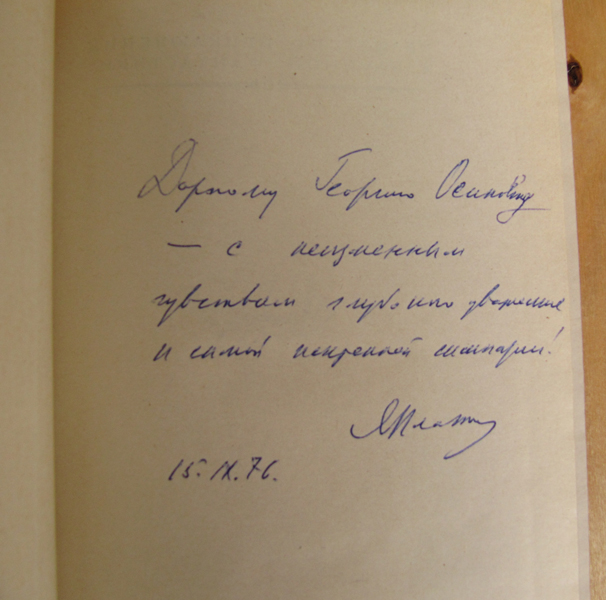 Дорогому Георгию Осиповичу
— с неизменным
чувством глубокого уважения
и самой искренней симпатии!
15.IX.76.